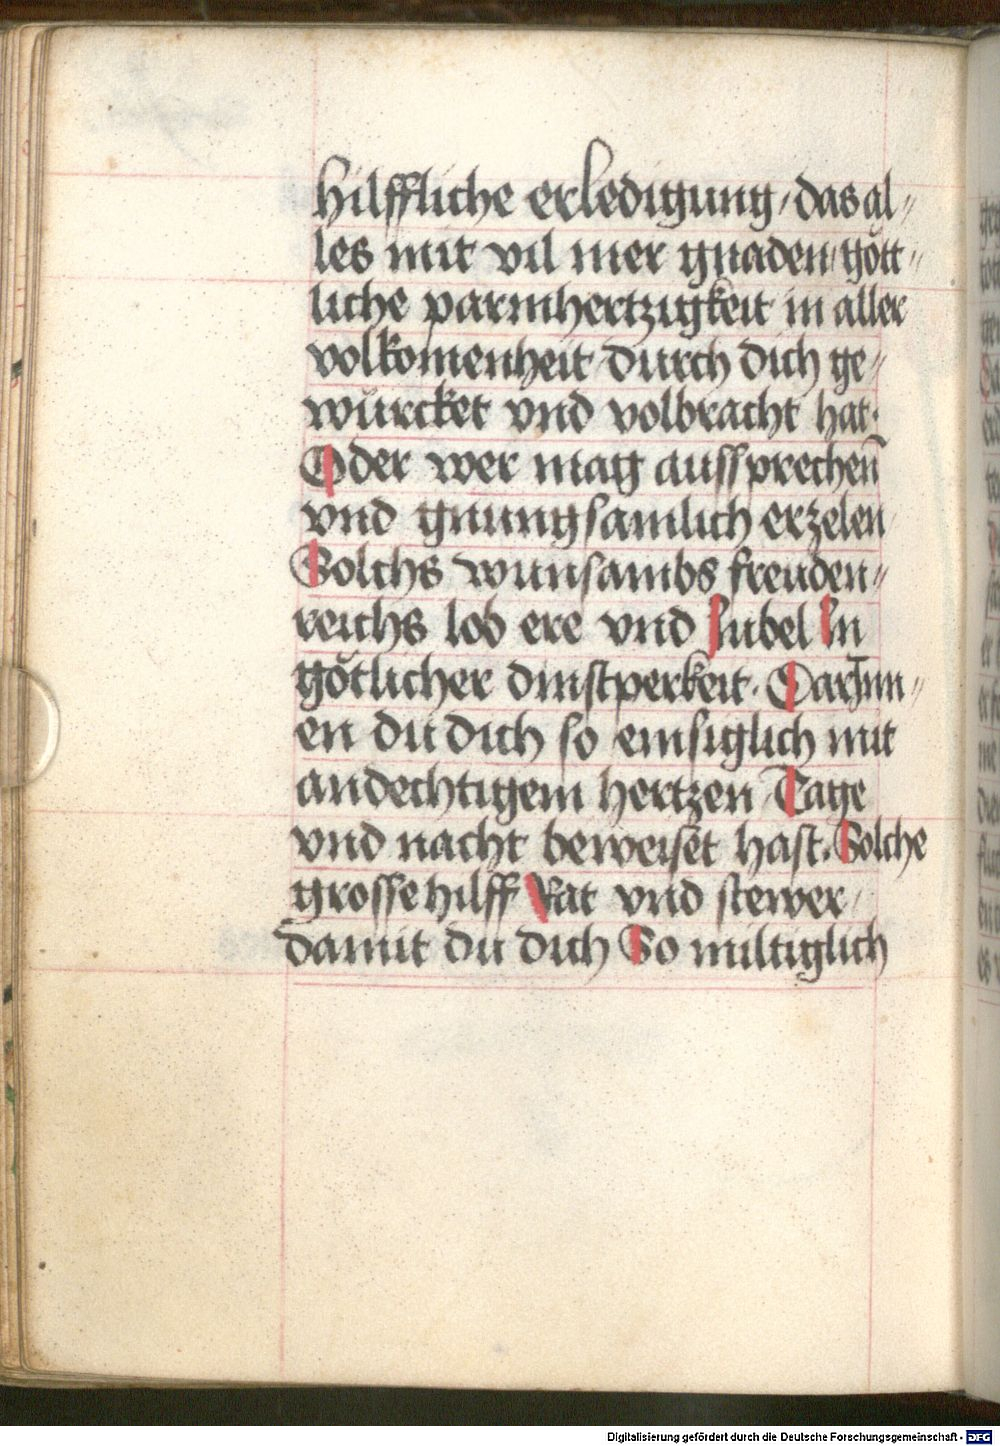 hilffliche erledigung / das al〃
les mit vil mer gnaden / gött〃
liche parmhertzigkeit in aller
volkomenheit durch dich ge〃
würcket vnd volbracht hat ·
Oder wer mag aussprechen̄
vnd gnungsamlich erzelen
Solchs wunsambs freuden〃
reichs lob ere vnd Jubel In
götlicher dinstperkeit · DarJnn〃
en du dich so emsiglich mit
andechtigem hertzen Tage
vnd nacht beweiset hast. Solche
grosse hilff Rat vnd stewer /
damit du dich So miltiglich
Digitalisierung gefördert durch die Deutsche Forschungsgemeinschaft - DFG